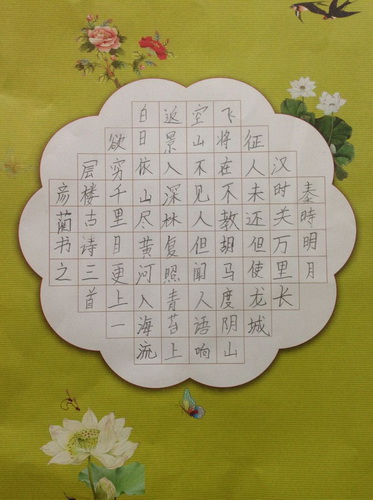 秦時明月
汉时关万里长
征人未还但使龙城
飞将在不教胡马度阴山
空山不见人但闻人语响
返景入深林复照青苔上
白日依山尽黄河入海流
欲穷千里目更上一
层楼古诗三首
彦蔺书之